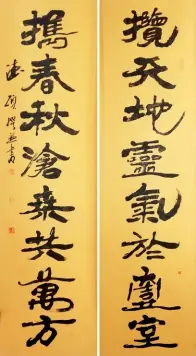 攬天地靈氣於臺室
携春秋滄桑共萬方